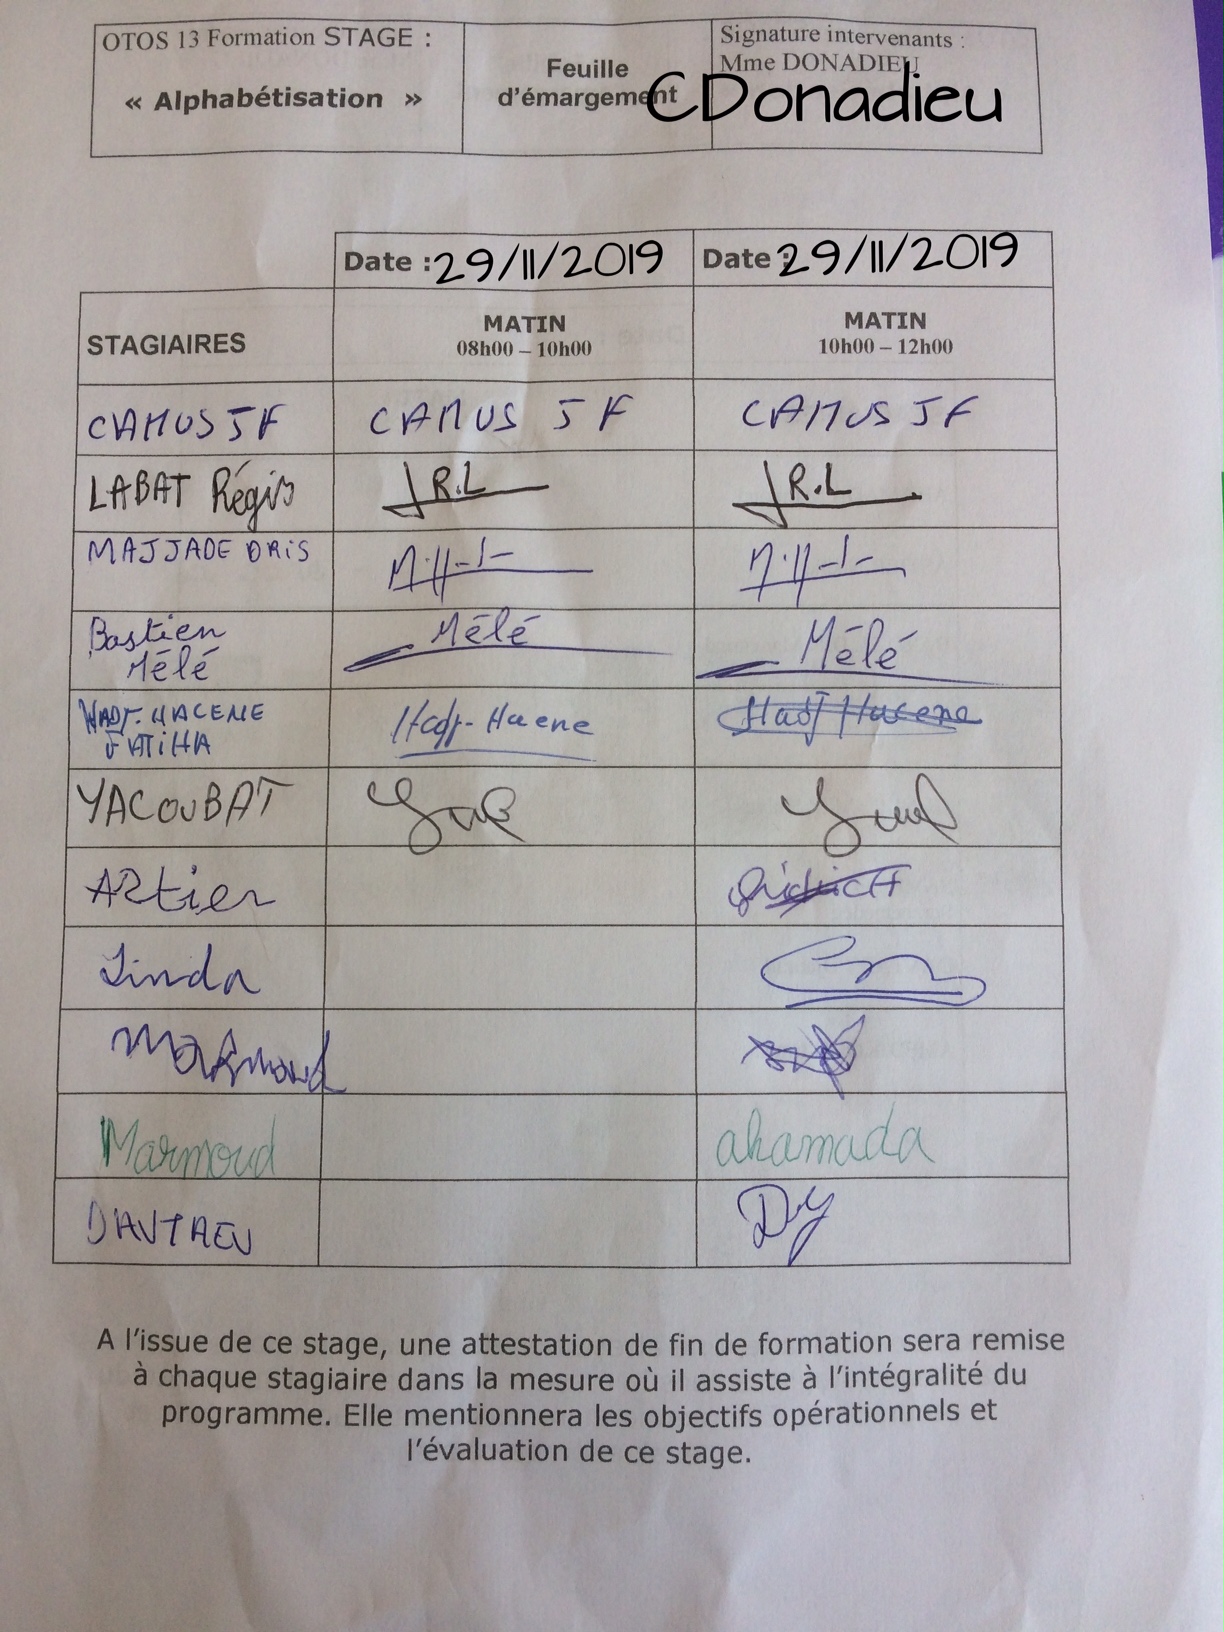 OTOS 13 Formation STAGE :
« Alphabétisation »
Feuille
d'émargement
Signature intervenants :
Mme DONADIEU
CDonadieu
Date : 29/11/2019
Date : 29/11/2019
STAGIAIRES
MATIN
08h00 – 10h00
MATIN
10h00 – 12h00
CAMUS JF
CAMUS JF
CAMUS JF
LABAT Régis
R.L
R.L
MAJJADE DRIS
Bastien
Mélé
Mélé
Mélé
HADJ-HACENE
FATIHA
Hadj-Haene
Hadj Hacene
YACOUBAT
Artier
Linda
Marmoud
ahamada
A l'issue de ce stage, une attestation de fin de formation sera remise
à chaque stagiaire dans la mesure où il assiste à l'intégralité du
programme. Elle mentionnera les objectifs opérationnels et
l'évaluation de ce stage.